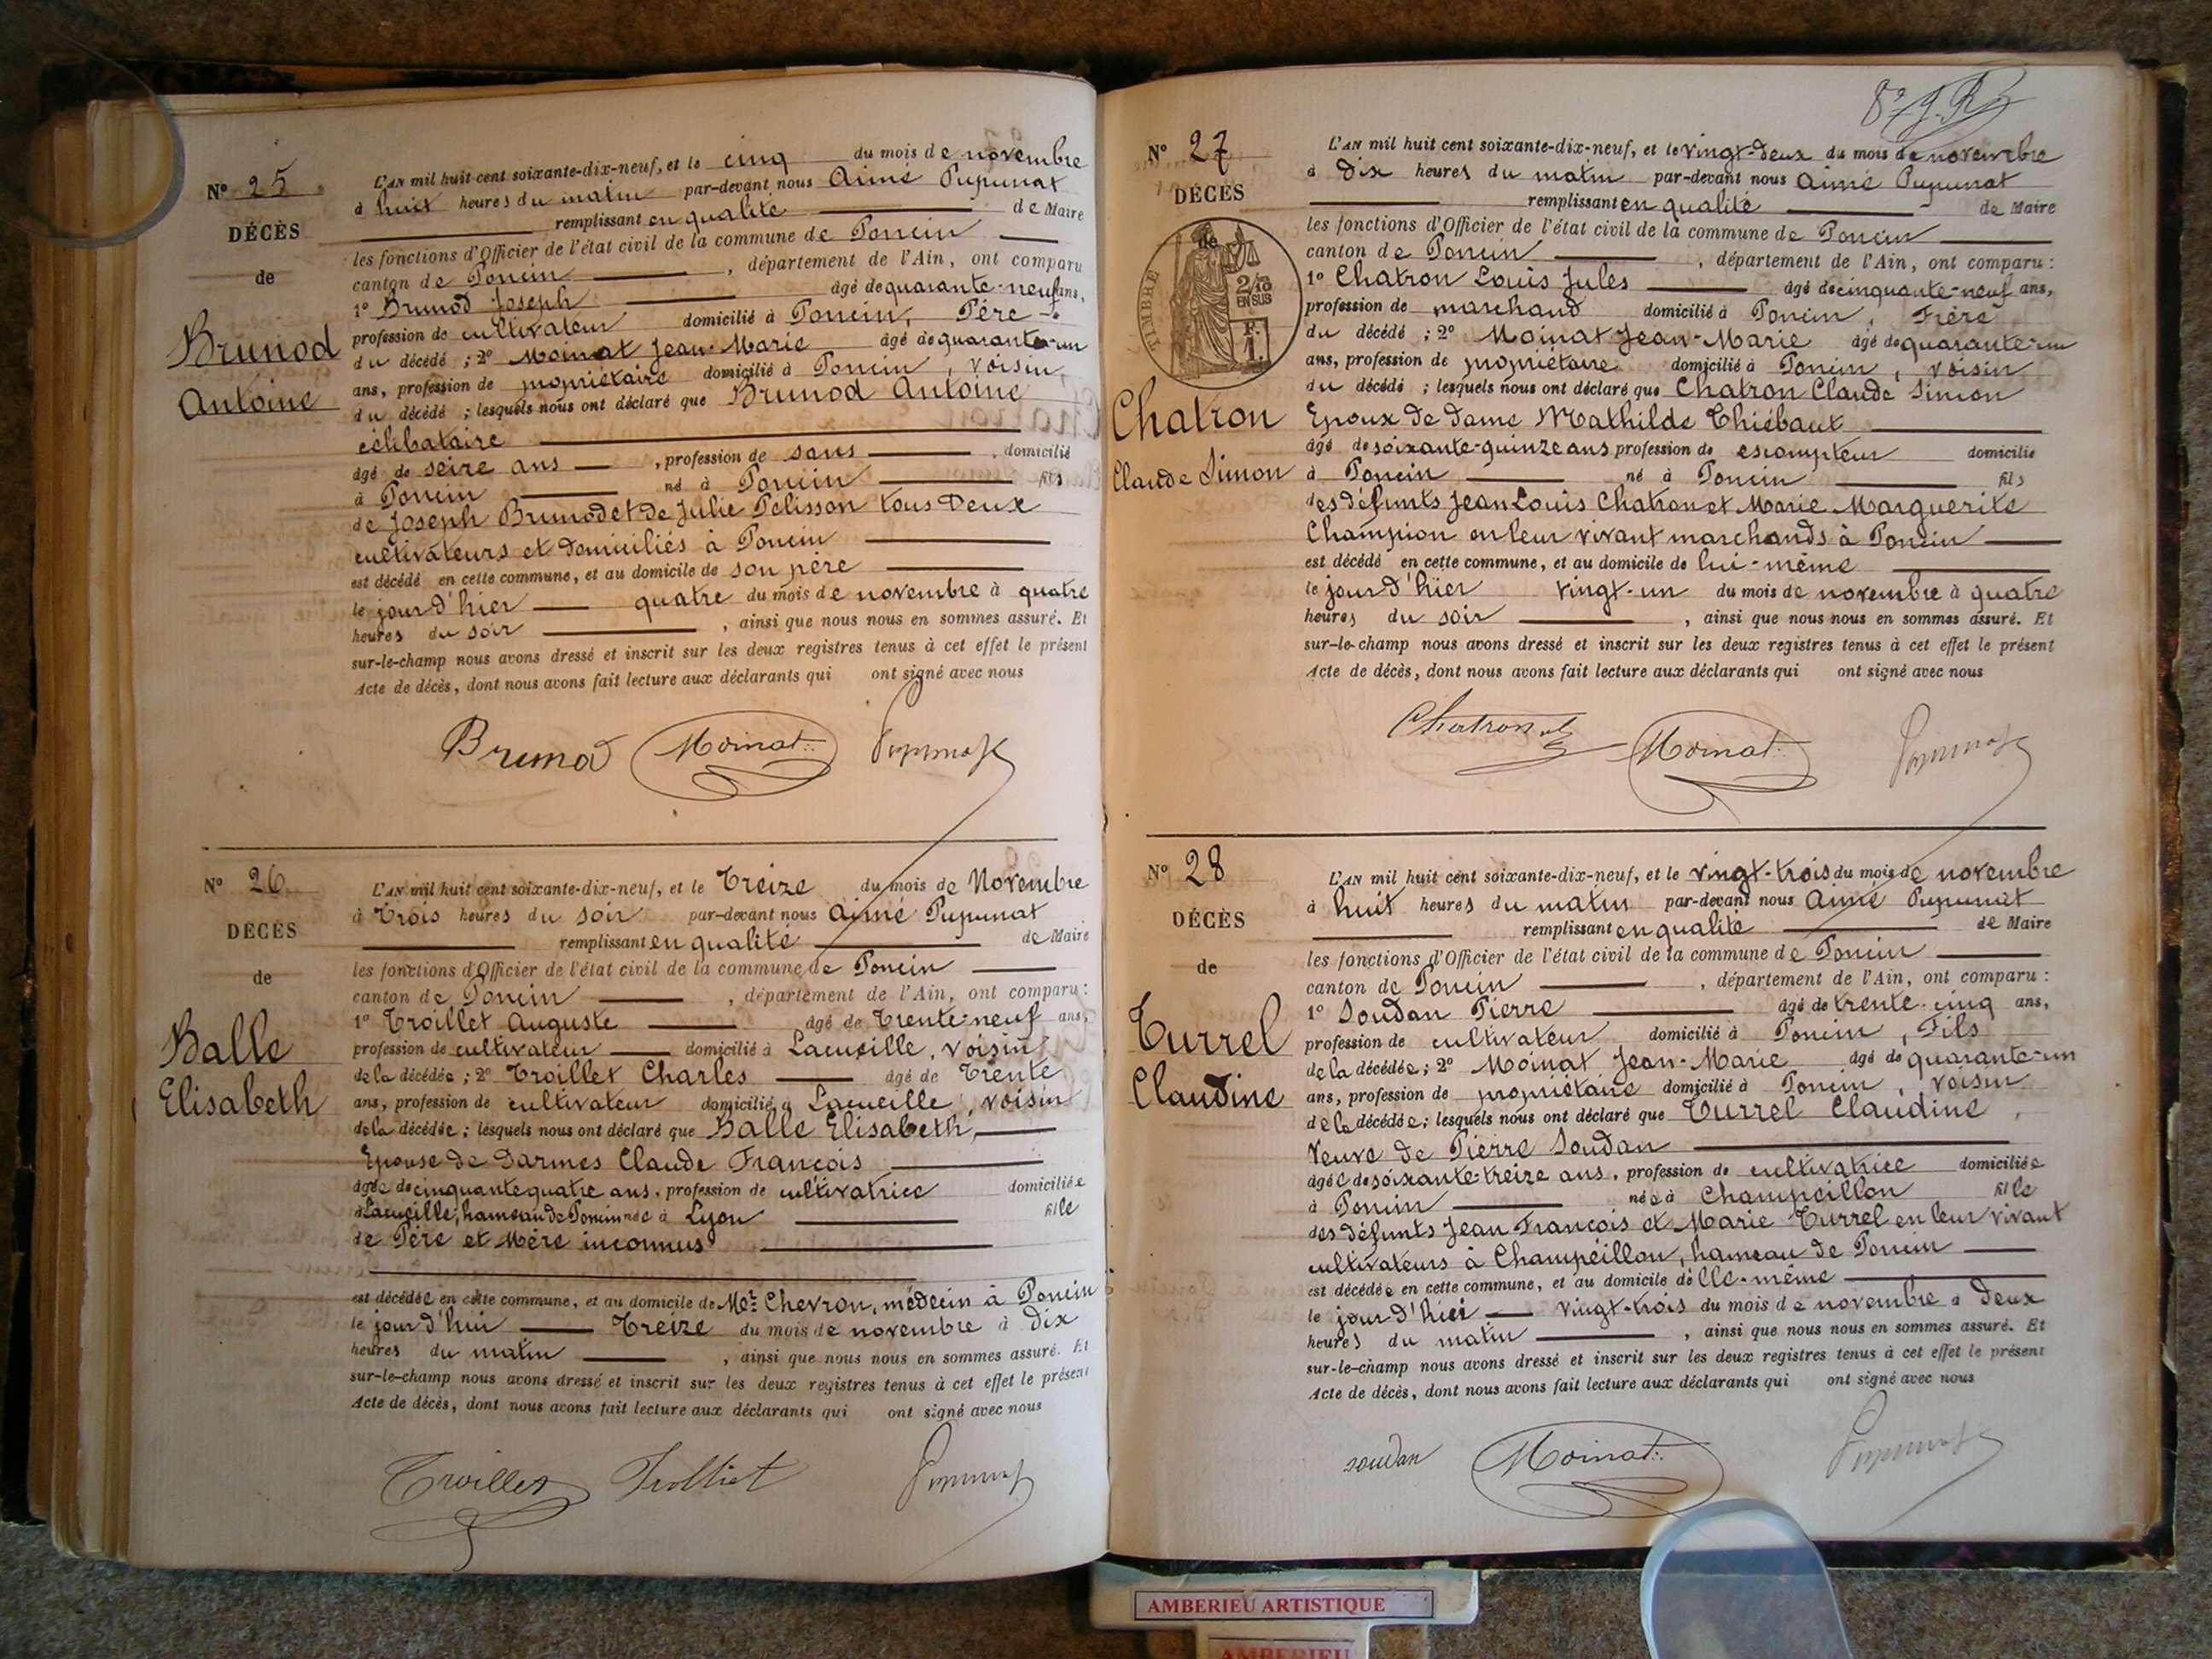 N° 25
DÉCÈS
de
Brunod
Antoine
L'AN mil huit cent soixante-dix-neuf, et le cinq du mois de novembre
à huit heures du matin par-devant nous Aimé Pupunat
remplissant en qualité de Maire
les fonctions d'Officier de l'état civil de la commune de Poncin
canton de Poncin, département de l'Ain, ont comparu
1° Brunod Joseph âgé de quarante-neuf ans,
profession de cultivateur domicilié à Poncin, Père
du décédé ; 2° Moinat Jean-Marie âgé de quarante-un
ans, profession de propriétaire domicilié à Poncin, voisin
du décédé ; lesquels nous ont déclaré que Brunod Antoine
célibataire
âgé de seize ans, profession de sans, domicilié
à Poncin né à Poncin fils
de Joseph Brunod et de Julie Pélisson tous deux
cultivateurs et domiciliés à Poncin
est décédé en cette commune, et au domicile de son père
le jour d'hier quatre du mois de novembre à quatre
heures du soir, ainsi que nous nous en sommes assuré. Et
sur-le-champ nous avons dressé et inscrit sur les deux registres tenus à cet effet le présent
Acte de décès, dont nous avons fait lecture aux déclarants qui ont signé avec nous
Brunod Moinat Pupunat
N° 26
DÉCÈS
de
Balle
Elisabeth
L'AN mil huit cent soixante-dix-neuf, et le Treize du mois de Novembre
à Trois heures du soir par-devant nous Aimé Pupunat
remplissant en qualité de Maire
les fonctions d'Officier de l'état civil de la commune de Poncin
canton de Poncin, département de l'Ain, ont comparu :
1° Troillet Auguste âgé de Trente-neuf ans,
profession de cultivateur domicilié à Lacueille, voisin
de la décédée ; 2° Troillet Charles âgé de Trente
ans, profession de cultivateur domicilié à Lacueille, voisin
de la décédée ; lesquels nous ont déclaré que Balle Elisabeth,
Epouse de Darmes Claude François
âgée de cinquante quatre ans, profession de cultivatrice domiciliée
à Lacueille, hameau de Poncin née à Lyon fille
de Père et Mère inconnus
est décédée en cette commune, et au domicile de Mr Chevron, médecin à Poncin
le jour d'hui Treize du mois de novembre à dix
heures du matin, ainsi que nous nous en sommes assuré. Et
sur-le-champ nous avons dressé et inscrit sur les deux registres tenus à cet effet le présent
Acte de décès, dont nous avons fait lecture aux déclarants qui ont signé avec nous
Troillet Trolliet Pupunat
N° 27
DÉCÈS
de
TIMBRE
2/10
EN SUS
Chatron
Claude Simon
L'AN mil huit cent soixante-dix-neuf, et le vingt-deux du mois de novembre
à dix heures du matin par-devant nous Aimé Pupunat
remplissant en qualité de Maire
les fonctions d'Officier de l'état civil de la commune de Poncin
canton de Poncin, département de l'Ain, ont comparu :
1° Chatron Louis Jules âgé de cinquante-neuf ans,
profession de marchand domicilié à Poncin, Frère
du décédé ; 2° Moinat Jean-Marie âgé de quarante-un
ans, profession de propriétaire domicilié à Poncin, voisin
du décédé ; lesquels nous ont déclaré que Chatron Claude Simon
Epoux de dame Mathilde Thiébaut
âgé de soixante-quinze ans profession de escompteur domicilié
à Poncin né à Poncin fils
des défunts Jean Louis Chatron et Marie Marguerite
Champion en leur vivant marchands à Poncin
est décédé en cette commune, et au domicile de lui-même
le jour d'hier vingt-un du mois de novembre à quatre
heures du soir, ainsi que nous nous en sommes assuré. Et
sur-le-champ nous avons dressé et inscrit sur les deux registres tenus à cet effet le présent
Acte de décès, dont nous avons fait lecture aux déclarants qui ont signé avec nous
Chatron Moinat Pupunat
N° 28
DÉCÈS
de
Turrel
Claudine
L'AN mil huit cent soixante-dix-neuf, et le vingt-trois du mois de novembre
à huit heures du matin par-devant nous Aimé Pupunat
remplissant en qualité de Maire
les fonctions d'Officier de l'état civil de la commune de Poncin
canton de Poncin, département de l'Ain, ont comparu :
1° Soudan Pierre âgé de trente-cinq ans,
profession de cultivateur domicilié à Poncin, Fils
de la décédée ; 2° Moinat Jean-Marie âgé de quarante-un
ans, profession de propriétaire domicilié à Poncin, voisin
de la décédée ; lesquels nous ont déclaré que Turrel Claudine,
Veuve de Pierre Soudan
âgée de soixante-treize ans, profession de cultivatrice domiciliée
à Poncin née à Champeillon fille
des défunts Jean François et Marie Turrel en leur vivant
cultivateurs à Champeillon, hameau de Poncin
est décédée en cette commune, et au domicile d'elle-même
le jour d'hier vingt-trois du mois de novembre à deux
heures du matin, ainsi que nous nous en sommes assuré. Et
sur-le-champ nous avons dressé et inscrit sur les deux registres tenus à cet effet le présent
Acte de décès, dont nous avons fait lecture aux déclarants qui ont signé avec nous
soudan Moinat Pupunat
AMBERIEU ARTISTIQUE
AMBERIEU